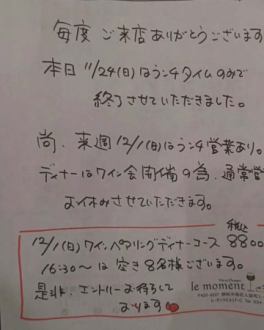 毎度ご来店ありがとうございます
本日11/24(日)はランチタイムのみで
終了させていただきました。
尚、来週12/1(日)はランチ営業あり。
ディナーはワイン会開催の為、通常営
お休みさせていただきます。
税込
12/1(日)ワインペアリングディナーコース 8800
16:30〜は空き8名様ございます。
是非エントリーお待ちして
おります
le moment